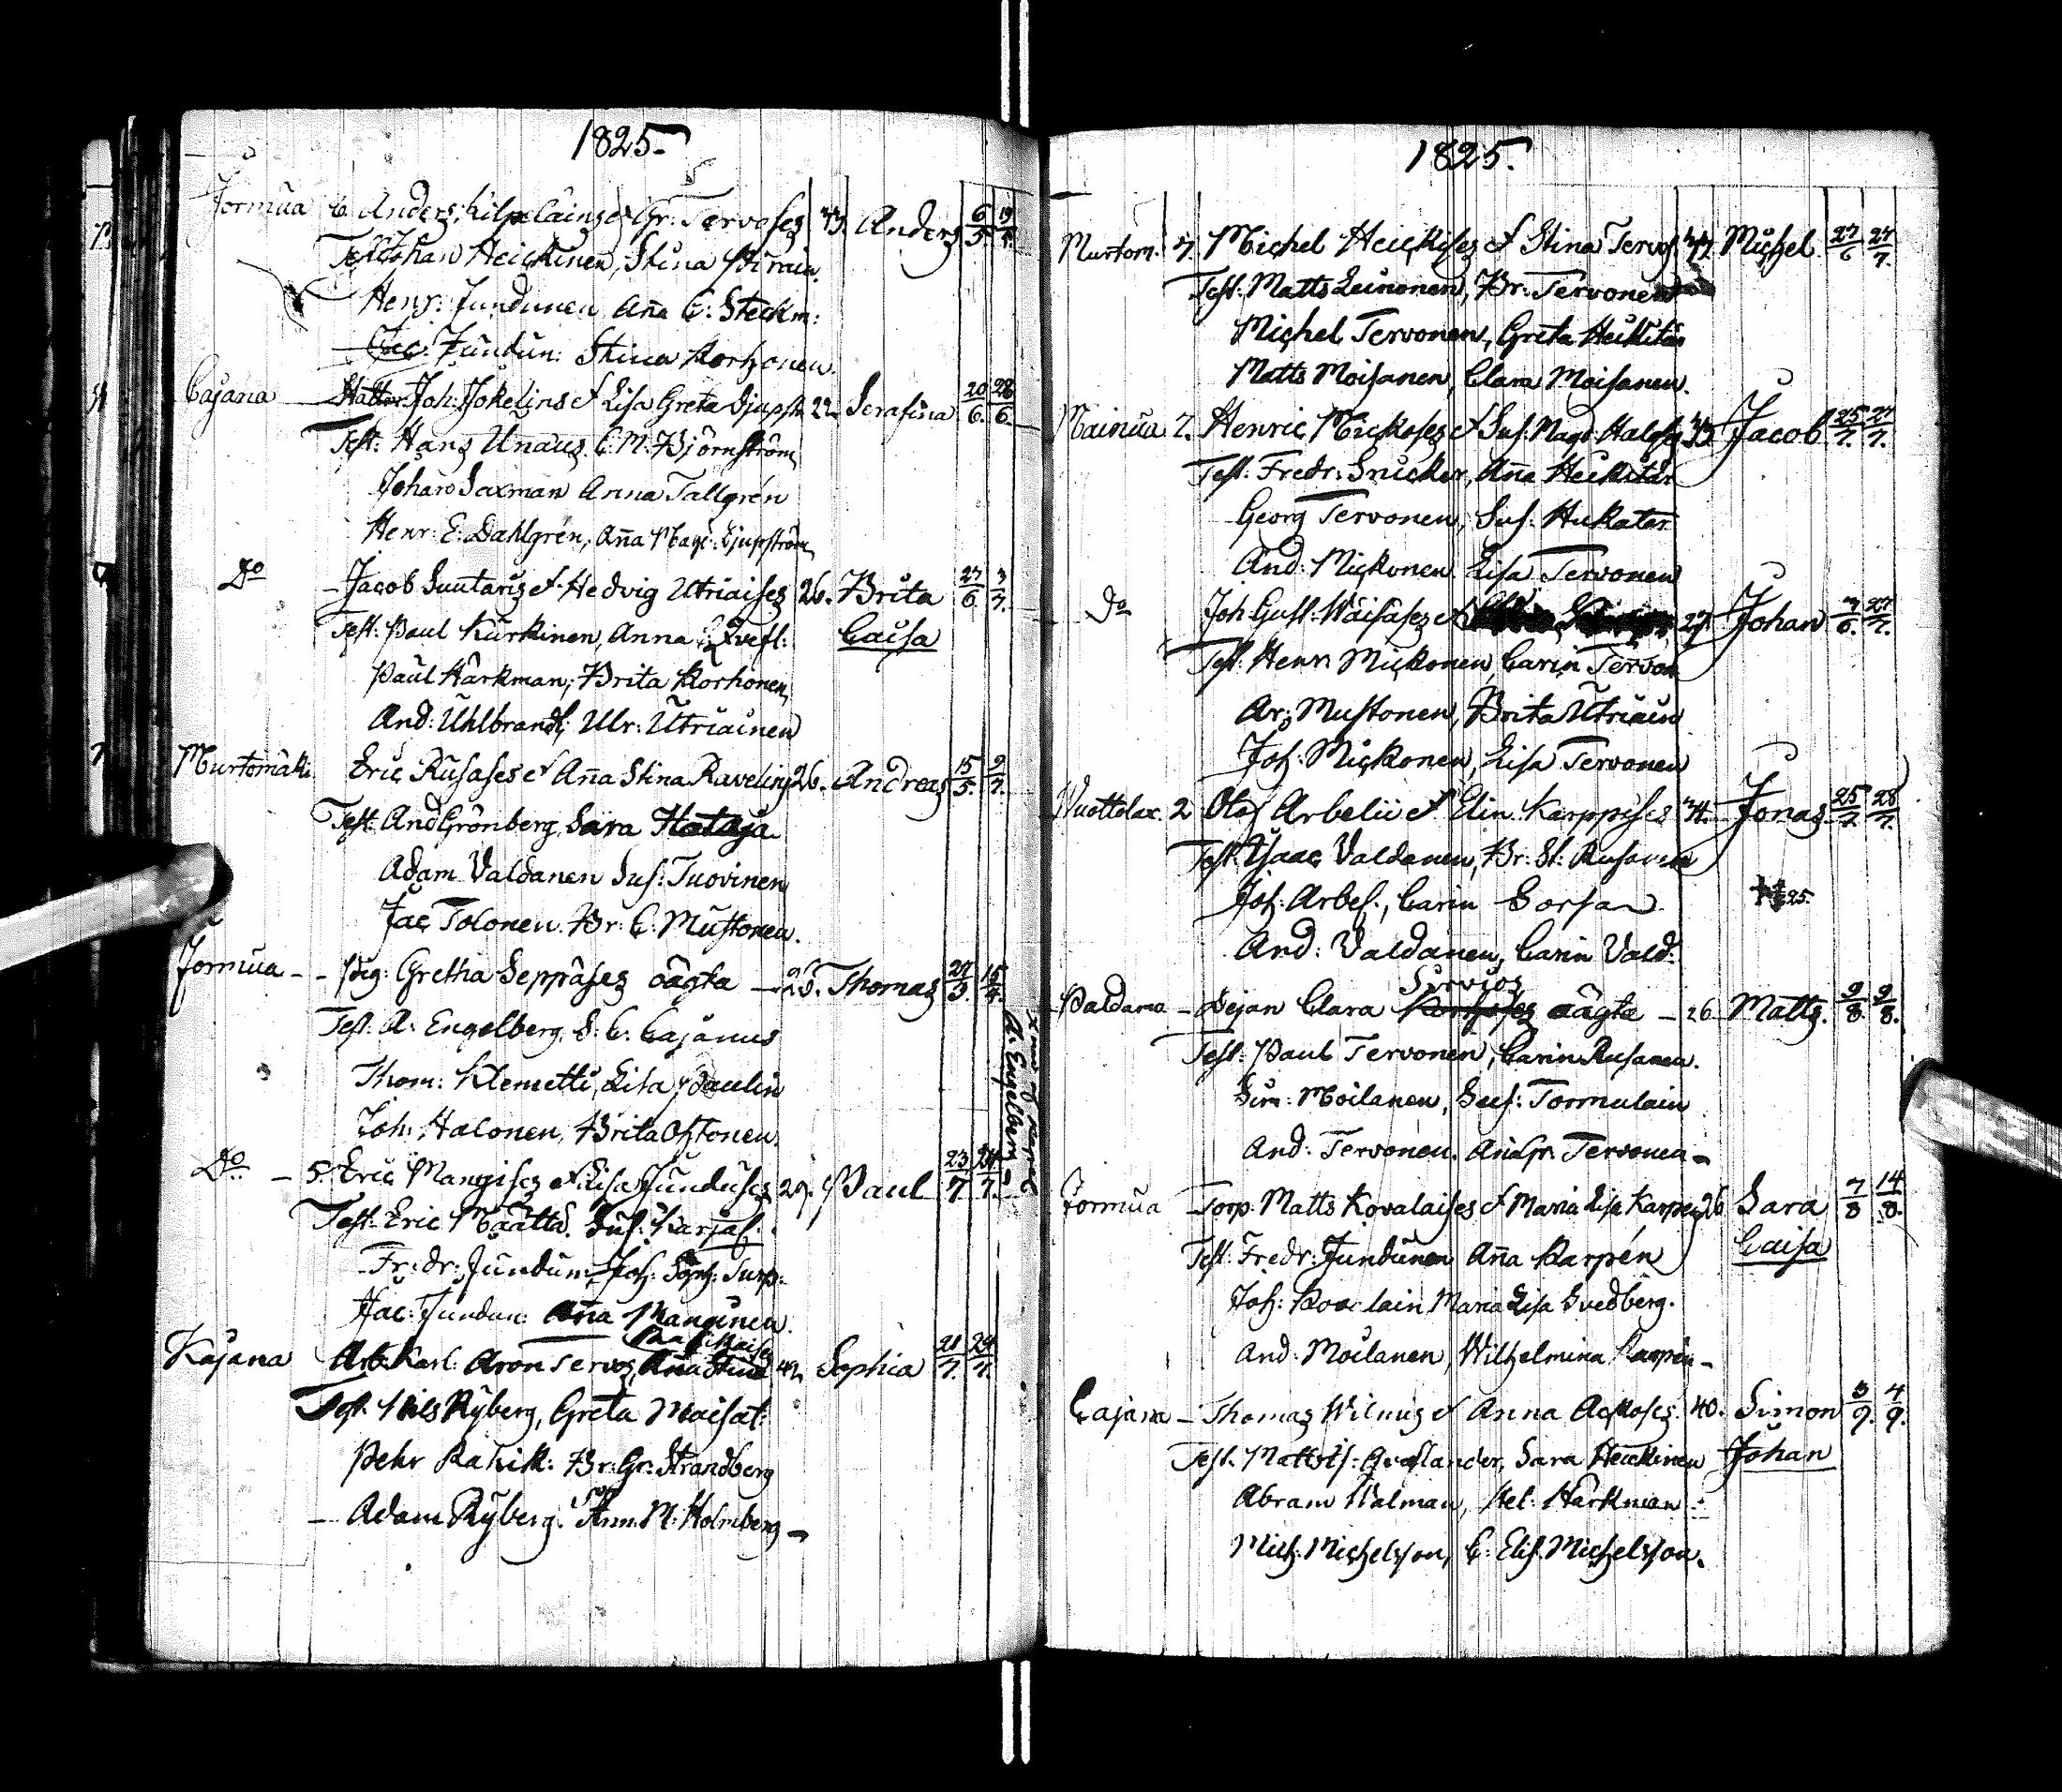 1825.
Jormua 6. Anders Kilpeläings & Gr: Tervoses 33. Anders 6/5. 19/6.
Test. Johan Heickinen, Stina Hirvin.
Henr: Jundunen, Aña C: Steckm:
Jac: Jundun: Stina Korhonen.
Cajana Joh: Jokelins & Lisa Greta Djupstr. 22. Serafina 20/6. 28/6.
Test: Hans Unæus, C. M. Björnström,
Johan Saxman Anna Tallgrén
Henr: E. Dahlgrén, Aña Magd: Djupström,
Do – Jacob Suutaris & Hedvig Utriaises 26. Brita 27/6 3/7.
Test: Paul Kurkinen, Anna Caisa
Paul Harkman, Brita Korhonen,
And: Uhlbrandt, Ulr: Utriainen
Murtomäki Eric Rusases & Aña Stina Ravelins 26. Andreas 15/5. 9/7.
Test. And Grönberg, Sara Hataja
Adam Valdanen Sus: Tuovinen
Jac Tolonen. Br: C. Mustonen.
Jormua – Pig: Gretha Seppäses oägta – 25. Thomas
Test. A: Engelberg. S: C. Cajanus
Thom: Klemetti, Lisa Paulin
Joh: Halonen, Brita Ohtonen.
A: Engelberg
Do – 5. Eric Mangises & Lisa Junduses 29. Paul 23/7. 24/7.
Test. Eric Määttä. Sus: Karjal:
Fredr: Jundun, Joh:
Jac: Jundun: Aña Manginen.
Kajana Arb. Karl: Aron Tervos, 42 Sophia 21/7. 24/7.
Test. Nils Ryberg, Greta Moisat:
Pehr Rahik: Br: Gr: Strandberg
– Adam Ryberg. Ann. M: Holmberg –
1825.
Murtom. 7. Michel Heickises & Stina Tervos 37. Michel 27/6 27/7.
Test. Matts Leinonen, Br: Tervonen
Michel Tervonen, Greta Heikitär
Matts Moisanen, Clara Moisanen.
Mainua 7. Henric Mickoses & Sus: Magd: Haloses 33 Jacob 25/7. 27/7.
Test. Fredr: Snicker, Aña Heickitär
Georg Tervonen, Sus: Hukatar
And: Mickonen Lisa Tervonen
Do Joh Gust. Wäisäses & 27. Johan 7/6. 27/7.
Test. Henr: Mickonen, Carin Tervon
Ar: Mustonen, Brita Utriain
Joh: Mickonen, Lisa Tervonen
Wuottolax. 2 Olof Arbelii & Elin Karppises 34. Jonas 25/7. 28/7.
Test. Isaac Valdanen, Br: St: Rusanen
Joh: Arbel:, Carin Sorsa
And: Valdanen, Carin Vald:
Paldama – Pejan Clara Korhoses Survios oägta – 26 Matts. 9/8. 9/8.
Test: Paul Tervonen, Carin Rusanen.
Sim: Moilanen, Sus: Tormulain
And: Tervonen. Tervonen –
Jormua Torp. Matts Kovalaises & Maria Lisa Karpen 26 Sara 7/8 14/8.
Test. Fredr: Jundunen Aña Karpén Caisa
Joh: Kovalain Maria Lisa Svedberg.
And: Moilanen, Wilhelmina Karpén –
Cajana – Thomas Wilmus & Anna Ackoses. 40. Simon 3/9. 4/9.
Test. Sara Heickinen Johan
Abram Walman, Hel: Härkman
Mich: Michelsson, C: Elis. Michelsson.